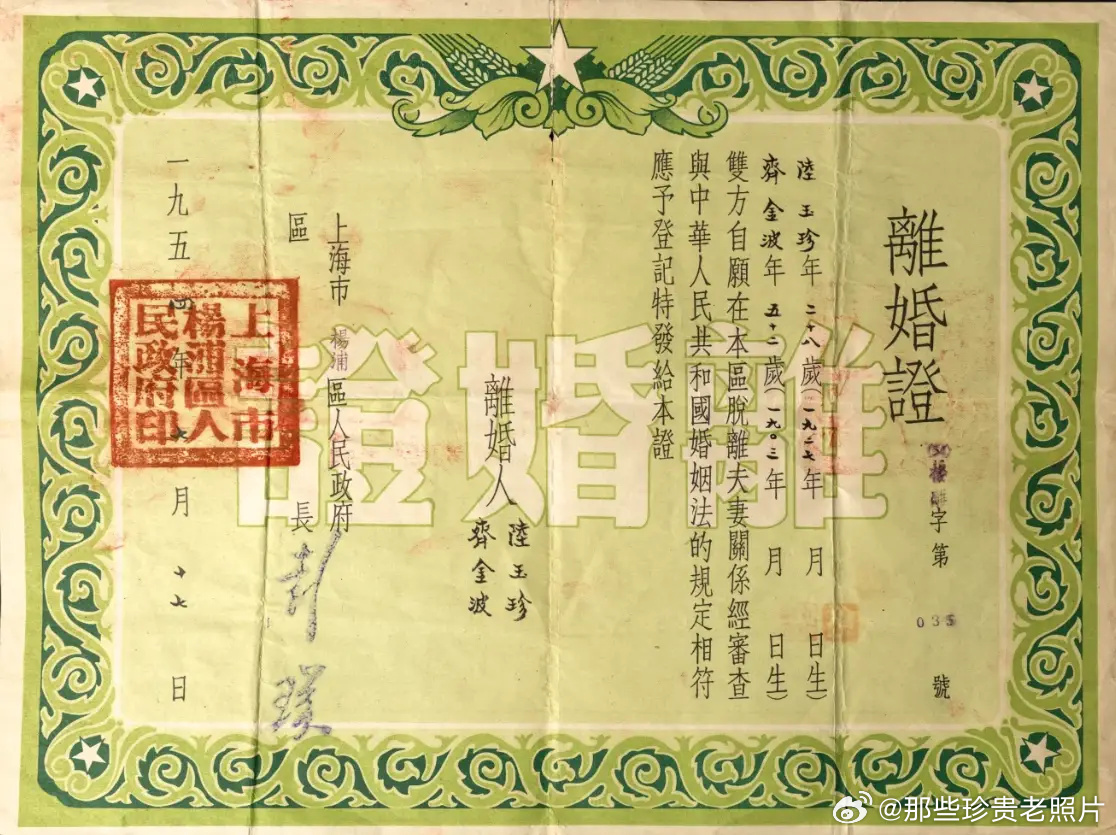 離婚證
楊離字第035號
陸玉珍年二十八歲(一九二七年 月 日生)
齊金波年五十二歲(一九〇三年 月 日生)
雙方自願在本區脫離夫妻關係經審查
與中華人民共和國婚姻法的規定相符
應予登記特發給本證
離婚人
陸玉珍
齊金波
上海市楊浦區人民政府
區 長
一九五四年 月十七日
上海市
楊浦區人
民政府印
離婚證
@那些珍贵老照片